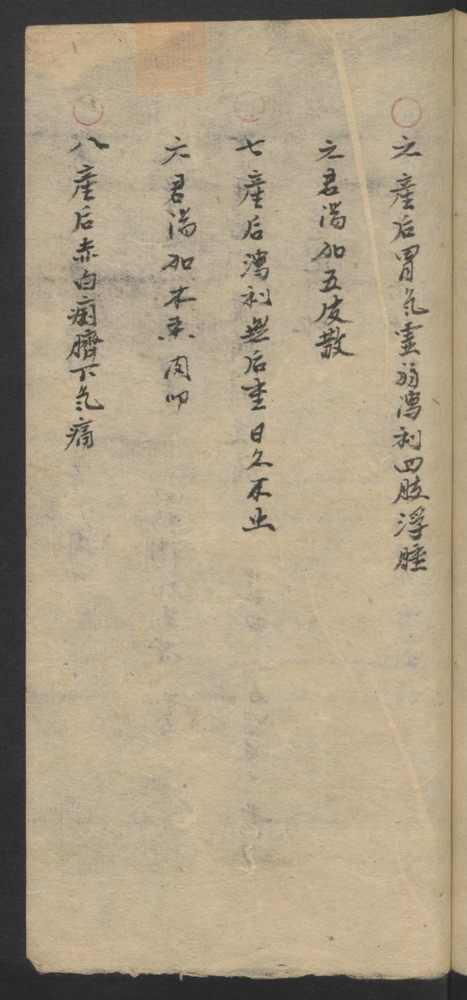 六産后胃气虚弱瀉利四肢浮腫
六君湯加五皮散
七産后瀉利無后重日久不止
六君湯加木香肉叩
八産后赤白痢臍下气痛